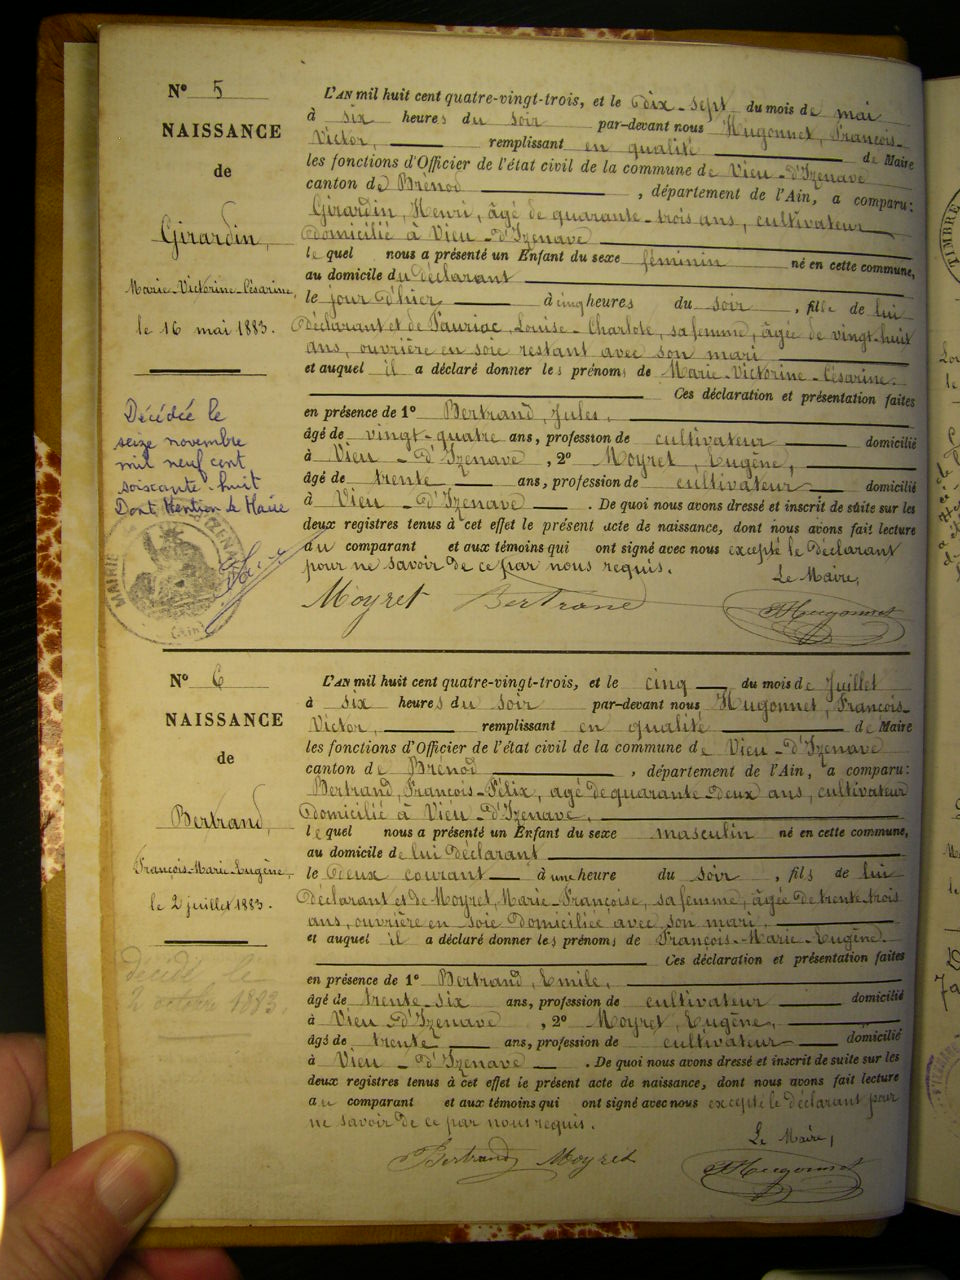 Nº 5
NAISSANCE
de
Girardin,
Marie-Victorine-Césarine,
le 16 mai 1883.
Décédée le
seize novembre
mil neuf cent
soixante-huit
Dont Mention le Maire
MAIRIE
(AIN)
L'AN mil huit cent quatre-vingt-trois, et le dix-sept du mois de mai
à six heures du soir par-devant nous Hugonnet, François-
Victor, remplissant en qualité de Maire
les fonctions d'Officier de l'état civil de la commune de Vieu-d'Izenave
canton de Brénod, département de l'Ain, a comparu:
Girardin, Henri, âgé de quarante-trois ans, cultivateur
domicilié à Vieu-d'Izenave
lequel nous a présenté un Enfant du sexe féminin né en cette commune,
au domicile du déclarant
le jour d'hier à cinq heures du soir, fille de lui
déclarant et de Tauriac, Louise-Charlote, sa femme, âgée de vingt-huit
ans, ouvrière en soie restant avec son mari
et auquel il a déclaré donner les prénoms de Marie-Victorine-Césarine.
Ces déclaration et présentation faites
en présence de 1º Bertrand, Jules,
âgé de vingt-quatre ans, profession de cultivateur domicilié
à Vieu-d'Izenave, 2º Moyret, Eugène,
âgé de trente ans, profession de cultivateur domicilié
à Vieu-d'Izenave. De quoi nous avons dressé et inscrit de suite sur les
deux registres tenus à cet effet le présent acte de naissance, dont nous avons fait lecture
au comparant et aux témoins qui ont signé avec nous excepté le déclarant
pour ne savoir de ce par nous requis.
Le Maire,
Moyret Bertrand Hugonnet
Nº 6
NAISSANCE
de
Bertrand,
François-Marie-Eugène,
le 2 juillet 1883.
décédé le
2 octobre 1883
L'AN mil huit cent quatre-vingt-trois, et le cinq du mois de Juillet
à six heures du soir par-devant nous Hugonnet, François-
Victor, remplissant en qualité de Maire
les fonctions d'Officier de l'état civil de la commune de Vieu-d'Izenave
canton de Brénod, département de l'Ain, a comparu:
Bertrand, François-Félix, agé de quarante deux ans, cultivateur
domicilié à Vieu-d'Izenave,
lequel nous a présenté un Enfant du sexe masculin né en cette commune,
au domicile de lui déclarant
le deux courant à une heure du soir, fils de lui
déclarant et de Moyret, Marie-Françoise, sa femme, âgée de trente-trois
ans, ouvrière en soie domiciliée avec son mari
et auquel il a déclaré donner les prénoms de François-Marie-Eugène.
Ces déclaration et présentation faites
en présence de 1º Bertrand, Emile,
âgé de trente-six ans, profession de cultivateur domicilié
à Vieu-d'Izenave, 2º Moyret, Eugène,
âgé de trente ans, profession de cultivateur domicilié
à Vieu-d'Izenave. De quoi nous avons dressé et inscrit de suite sur les
deux registres tenus à cet effet le présent acte de naissance, dont nous avons fait lecture
au comparant et aux témoins qui ont signé avec nous excepté le déclarant pour
ne savoir de ce par nous requis.
Le Maire,
Bertrand Moyret Hugonnet
TIMBRE